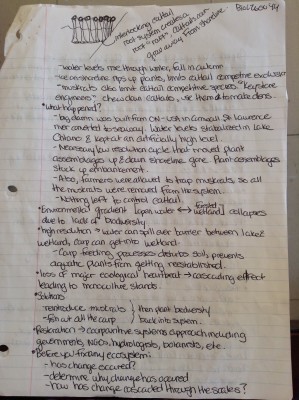 Biol 2000 49
interlocking cattail
root system creates a
root "raft". cattails can
grow away from shoreline.
- water levels rise through winter, fall in autumn
- ice on shoreline rips up plants, limits cattail competitive exclusion
- muskrats also limit cattail competitive species. "Keystone
engineers" chew down cattails, use them to make dens.
*What happened?
- big damn was built from CN-USA in Cornwall. St. Lawrence
river converted to seaway. Water levels stabilized in Lake
Ontario & kept at an artificially high level.
- Necessary low resolution cycles that moved plant
assemblages up & down shoreline gone. Plant assemblages
stack up embankment.
- Also, farmers were allowed to trap muskrats, so all
the muskrats were removed from the system.
- Nothing left to control cattail.
*Environmental gradient (open water ↔ forested wetland) collapses
due to lack of biodiversity
*high resolution → water can spill over barrier between lake &
wetland, carp can get into wetland.
- Carp feeding processes disturbs soil, prevents
aquatic plants from getting reestablished.
*loss of major ecological heartbeat → cascading effect
leading to monoculture stands.
*Solutions
- reintroduce muskrats
- fish out all the carp
then plant biodiversity
back into system
*Restoration → comparative systems approach including
governments, NGOs, hydrologists, botanists, etc.
*Before you fix any ecosystem:
- has change occured?
- determine why change has occured
- how has change cascaded through the scales?